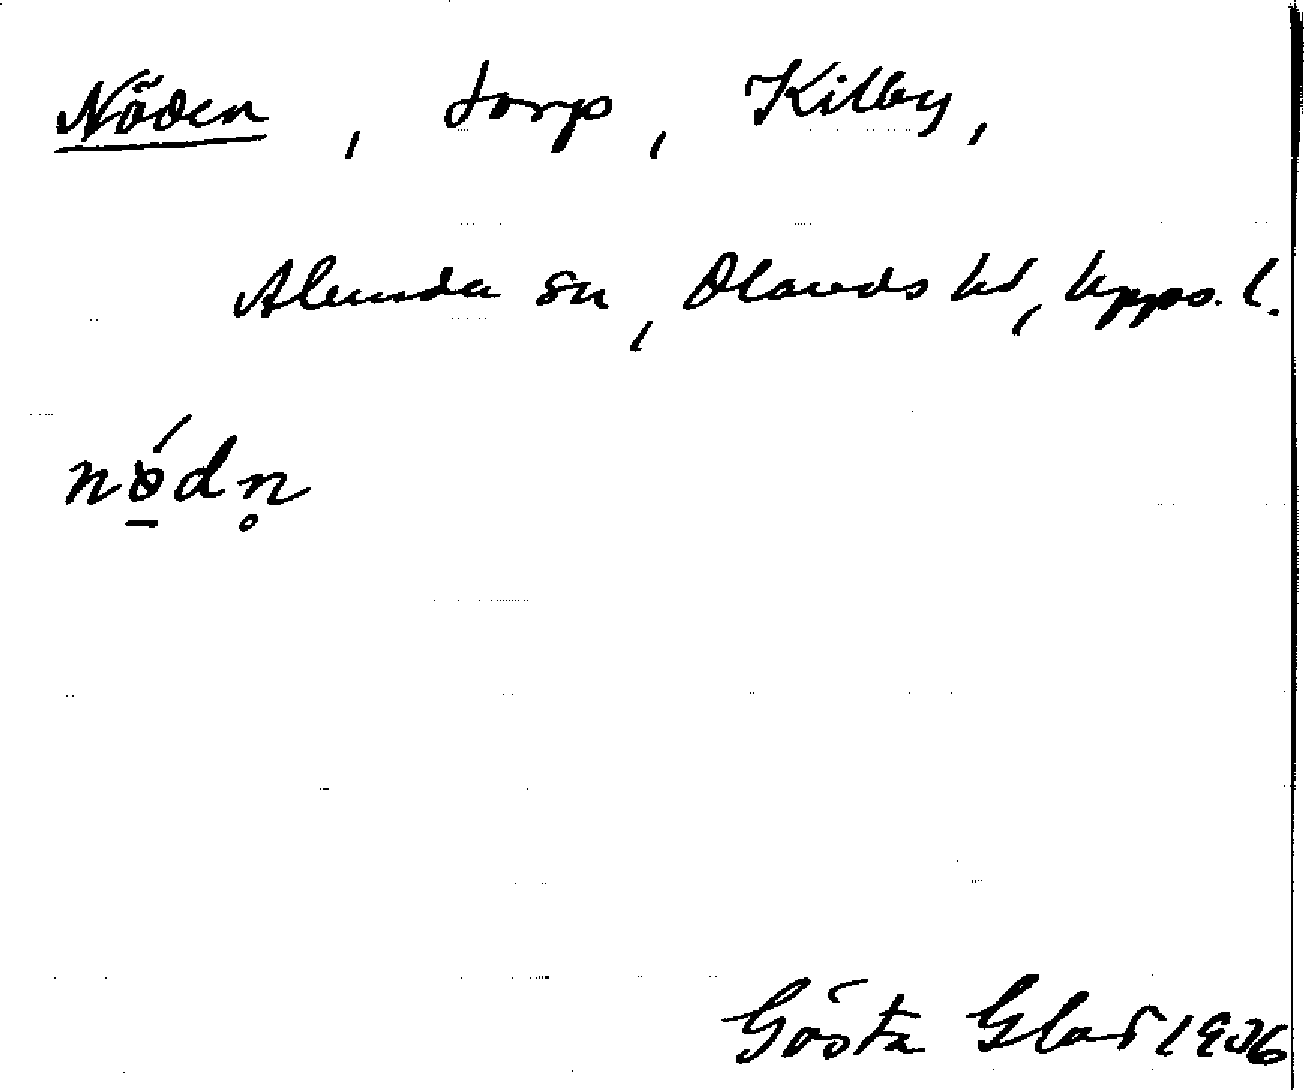 Nöden, torp, Kilby,
Alunda sn, Olands hd, Upps. l.
nǿ̱dn̥
Gösta Glad 1936